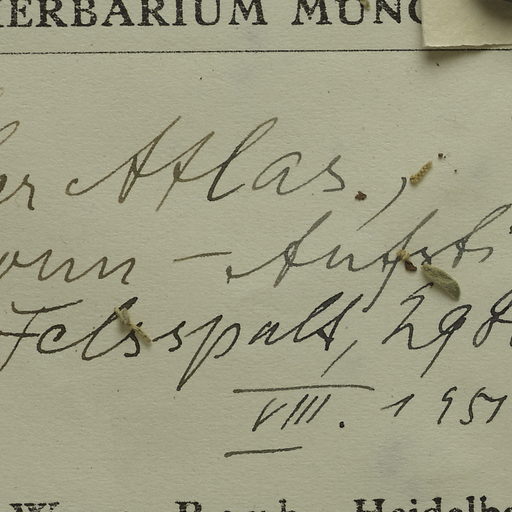 HERBARIUM MUNC
er Atlas,
onn - Aufsti
Felsspalt, 298
VIII. 1951
W. Rauh Heidelbe